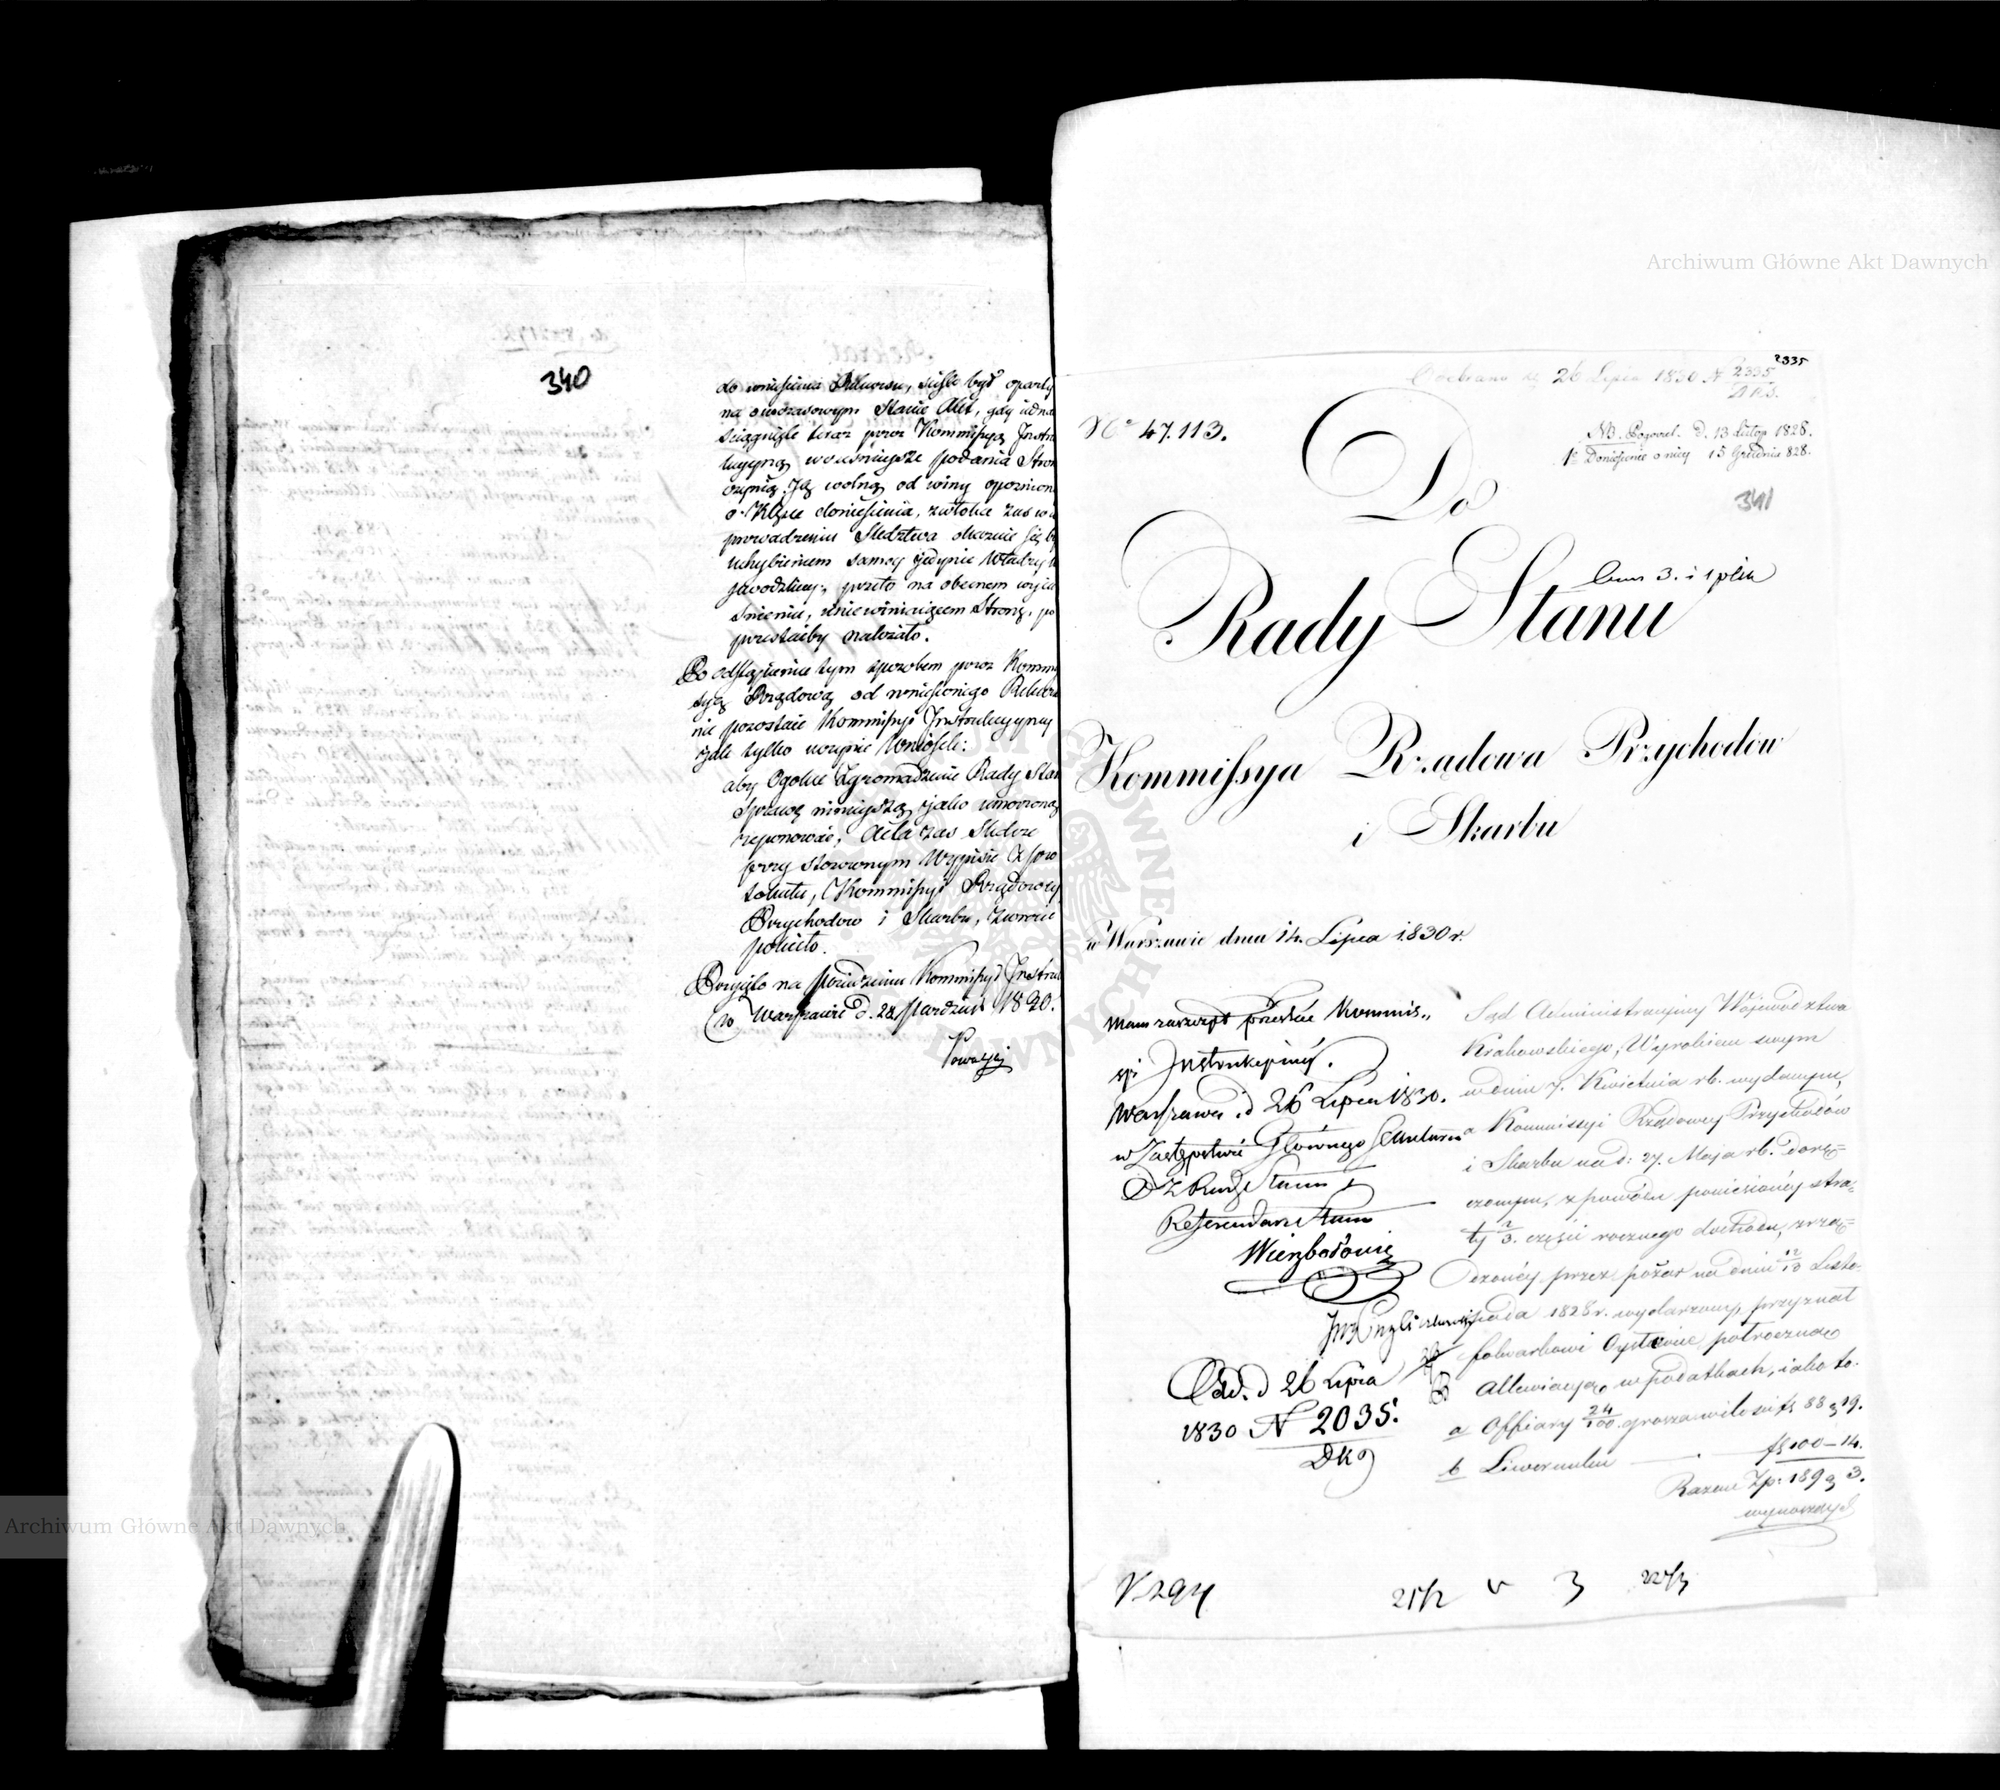 340
do wniesienia Rekursu, ściśle być oparty
na owoczasowym Stanie Akt, gdy
ściągnięte teraz przez Kommissyą Instru
kcyiną wcześniejsze podania Stron
czynią Ją wolną od winy opoźnion
o Klęsce doniesienia, zwłoka zaś w
prowadzeniu Śledztwa okazuie się
uchybieniem samey jedynie Władzy
przeto na obecnem wyia
śnieniu, uniewinniaiącem Stronę,
przestaćby należało.
Po odstąpieniu tym sposobem przez Kommi
syą Rządową od wniesionego Rekursu
nie pozostaie Kommissyi Instrukcyiney
jak tylko uczynić Wniosek:
aby Ogolne Zgromadzenie Rady Stanu
Sprawę ninieyszą jako umorzoną
reponować, Akta zaś Śledcze
przy stosownym Wypisie z Proto
tokułu, Kommissyi Rządowey
Przychodow i Skarbu, zwrócić
poleciło.
Przyięto na posiedzeniu Kommissyi Instruk
w Warszawie d. 22 Pazdzier 1830.
Archiwum Główne Akt Dawnych
2335
Odebrano dnia 26 Lipca 1830 N 2335
No 47.113.
NB. Pogorzel. d. 13 Listop 1828.
1e Doniesienie o niey 15 Grudnia 828.
341
Do
3. i 1 plik
Rady Stanu
Kommissya Rządowa Przychodów
i Skarbu
w Warszawie dnia 14. Lipca 1830 r.
Mam zaszczyt przesłać Kommis„
syi Instrukcyiney.
Warszawa d 26 Lipca 1830.
w Zastępstwie Głównego Sekretarza
Rady Stanu
Referendarz Stanu
Wierzbołowicz
Odd. d 26 Lipca
1830 N 2035.
DKJ
Sąd Administracyiny Województwa
Krakowskiego, Wyrokiem swym
w dniu 7. Kwietnia rb. wydanym,
a Kommissyi Rządowey Przychodów
i Skarbu na d: 27. Maja rb. dorę=
czonym, z powodu poniesionéy stra=
ty 2/3. części rocznego dochodu, zrzą=
dzonéy przez pożar na dniu 12/13 Listo=
pada 1828 r. wydarzony, przyznał
folwarkowi półroczną
allewiacyą w podatkach, iako to.
a Offiary 24/100 grosza w ilości fl 88 g 19.
b Liwerunku fl 100 — 14.
Razem Zp: 189 g 3.
wynoszącą
Archiwum Główne Akt Dawnych